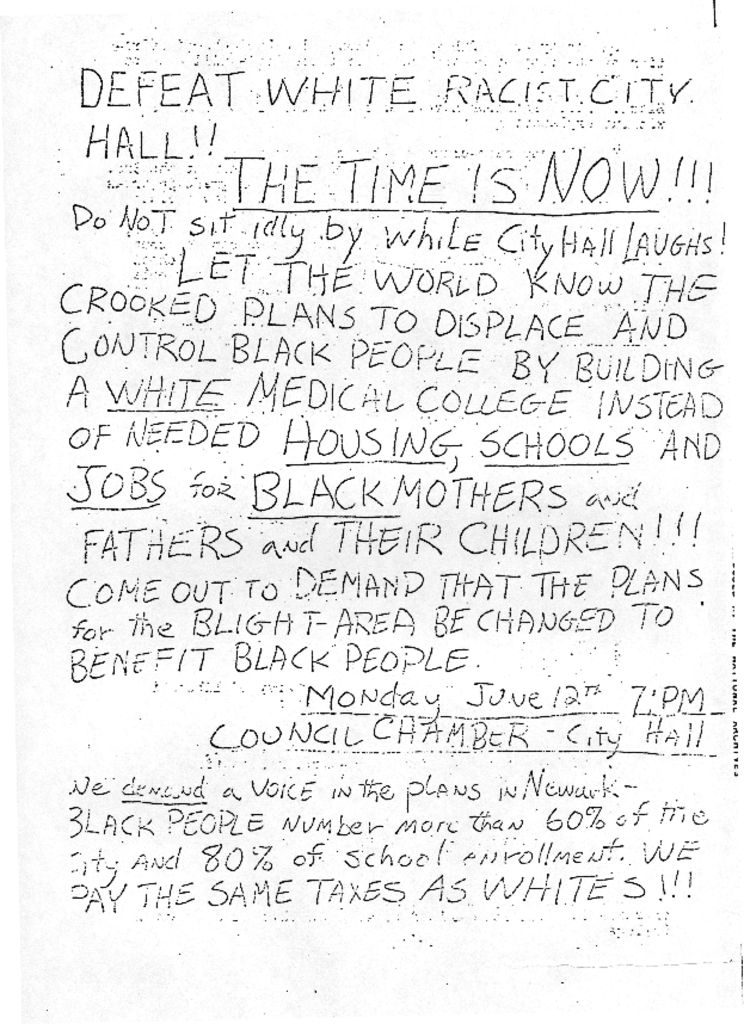 DEFEAT WHITE RACIST CITY
HALL!!
THE TIME IS NOW!!!
Do NOT sit idly by while City Hall LAUGHS!
LET THE WORLD KNOW THE
CROOKED PLANS TO DISPLACE AND
CONTROL BLACK PEOPLE BY BUILDING
A WHITE MEDICAL COLLEGE INSTEAD
OF NEEDED HOUSING, SCHOOLS AND
JOBS for BLACK MOTHERS and
FATHERS and THEIR CHILDREN!!!
COME OUT TO DEMAND THAT THE PLANS
for the BLIGHT-AREA BE CHANGED TO
BENEFIT BLACK PEOPLE.
Monday June 12TH 7:PM
COUNCIL CHAMBER - City Hall
We demand a VOICE in the plans in Newark-
BLACK PEOPLE Number more than 60% of the
city AND 80% of school enrollment. WE
PAY THE SAME TAXES AS WHITES!!!
THE NATIONAL ARCHIVES